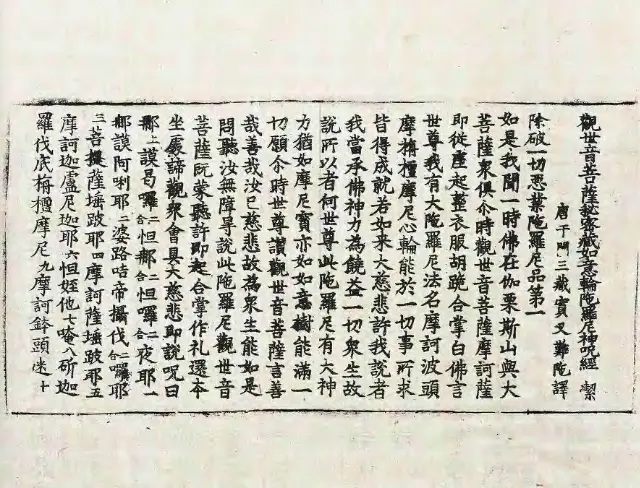 觀世音菩薩秘密藏如意輪陀羅尼神呪經 潔
唐于闐三藏實叉難陀譯
除破一切惡業陀羅尼品第一
如是我聞一時佛在伽栗斯山與大
菩薩衆俱尒時觀世音菩薩摩訶薩
即從座起整衣服胡跪合掌白佛言
世尊我有大陀羅尼法名摩訶波頭
摩栴檀摩尼心輪能於一切事所求
皆得成就若如來大慈悲許我說者
我當承佛神力為饒益一切衆生故
說所以者何世尊此陀羅尼有大神
力猶如摩尼寶亦如如意樹能滿一
切願尒時世尊讚觀世音菩薩言善
哉善哉汝已慈悲故為衆生能如是
問聽汝無障㝵說此陀羅尼觀世音
菩薩既蒙聽許即起合掌作礼還本
坐處諦觀衆會具大慈悲即說呪曰
那上謨曷囉二合怛那二合怛囉二合夜耶一
那謨阿唎耶二婆路咭帝攝伐二合囉耶
三菩提薩埵跛耶四摩訶薩埵跛耶五
摩訶迦盧尼迦耶六怛姪他七唵八斫迦
羅伐底栴檀摩尼九摩訶鉢頭迷十